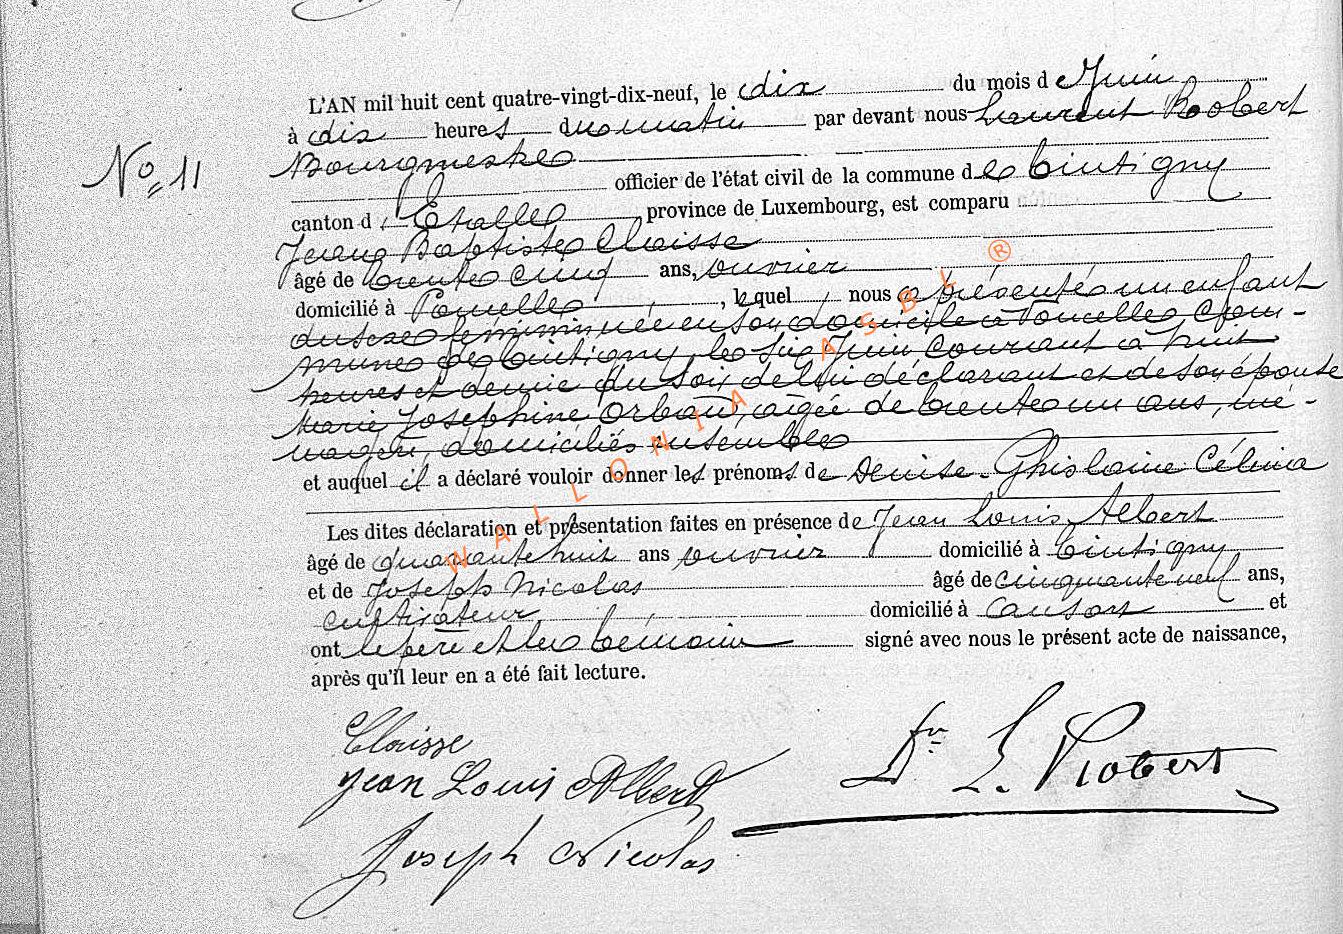 L'AN mil huit cent quatre-vingt-dix-neuf, le dix du mois de Juin
à dix heures du matin par devant nous Laurent Robert
No 11
Bourgmestre
officier de l'état civil de la commune de Tintigny
canton d'Etalle province de Luxembourg, est comparu
Jean Baptiste Claisse
âgé de trente cinq ans, ouvrier
domicilié à Poncelle, lequel nous a présenté un enfant
du sexe féminin née en son domicile à Poncelle Com-
mune de Tintigny, le six Juin courant à huit
heures et demie du soir de lui déclarant et de son épouse
Marie Josephine Orban, aigée de trente un ans, mé-
nagère, domiciliés ensemble
et auquel il a déclaré vouloir donner les prénoms de Denise Ghislaine Célina
Les dites déclaration et présentation faites en présence de Jean Louis Albert
âgé de quarante huit ans ouvrier domicilié à Tintigny
et de Joseph Nicolas âgé de cinquante neuf ans,
cultivateur domicilié à Ansart et
ont le père et les témoins signé avec nous le présent acte de naissance,
après qu'il leur en a été fait lecture.
Claisse
Jean Louis Albert
Dr L. Robert
Joseph Nicolas
WALLONIA ASBL ®